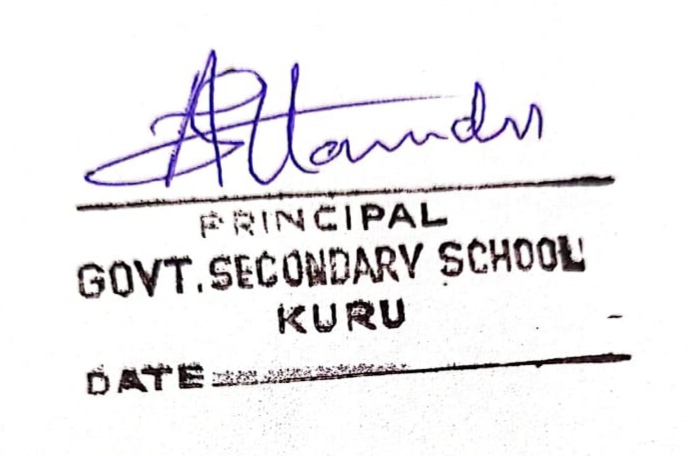 PRINCIPAL
GOVT. SECONDARY SCHOOL
KURU
DATE